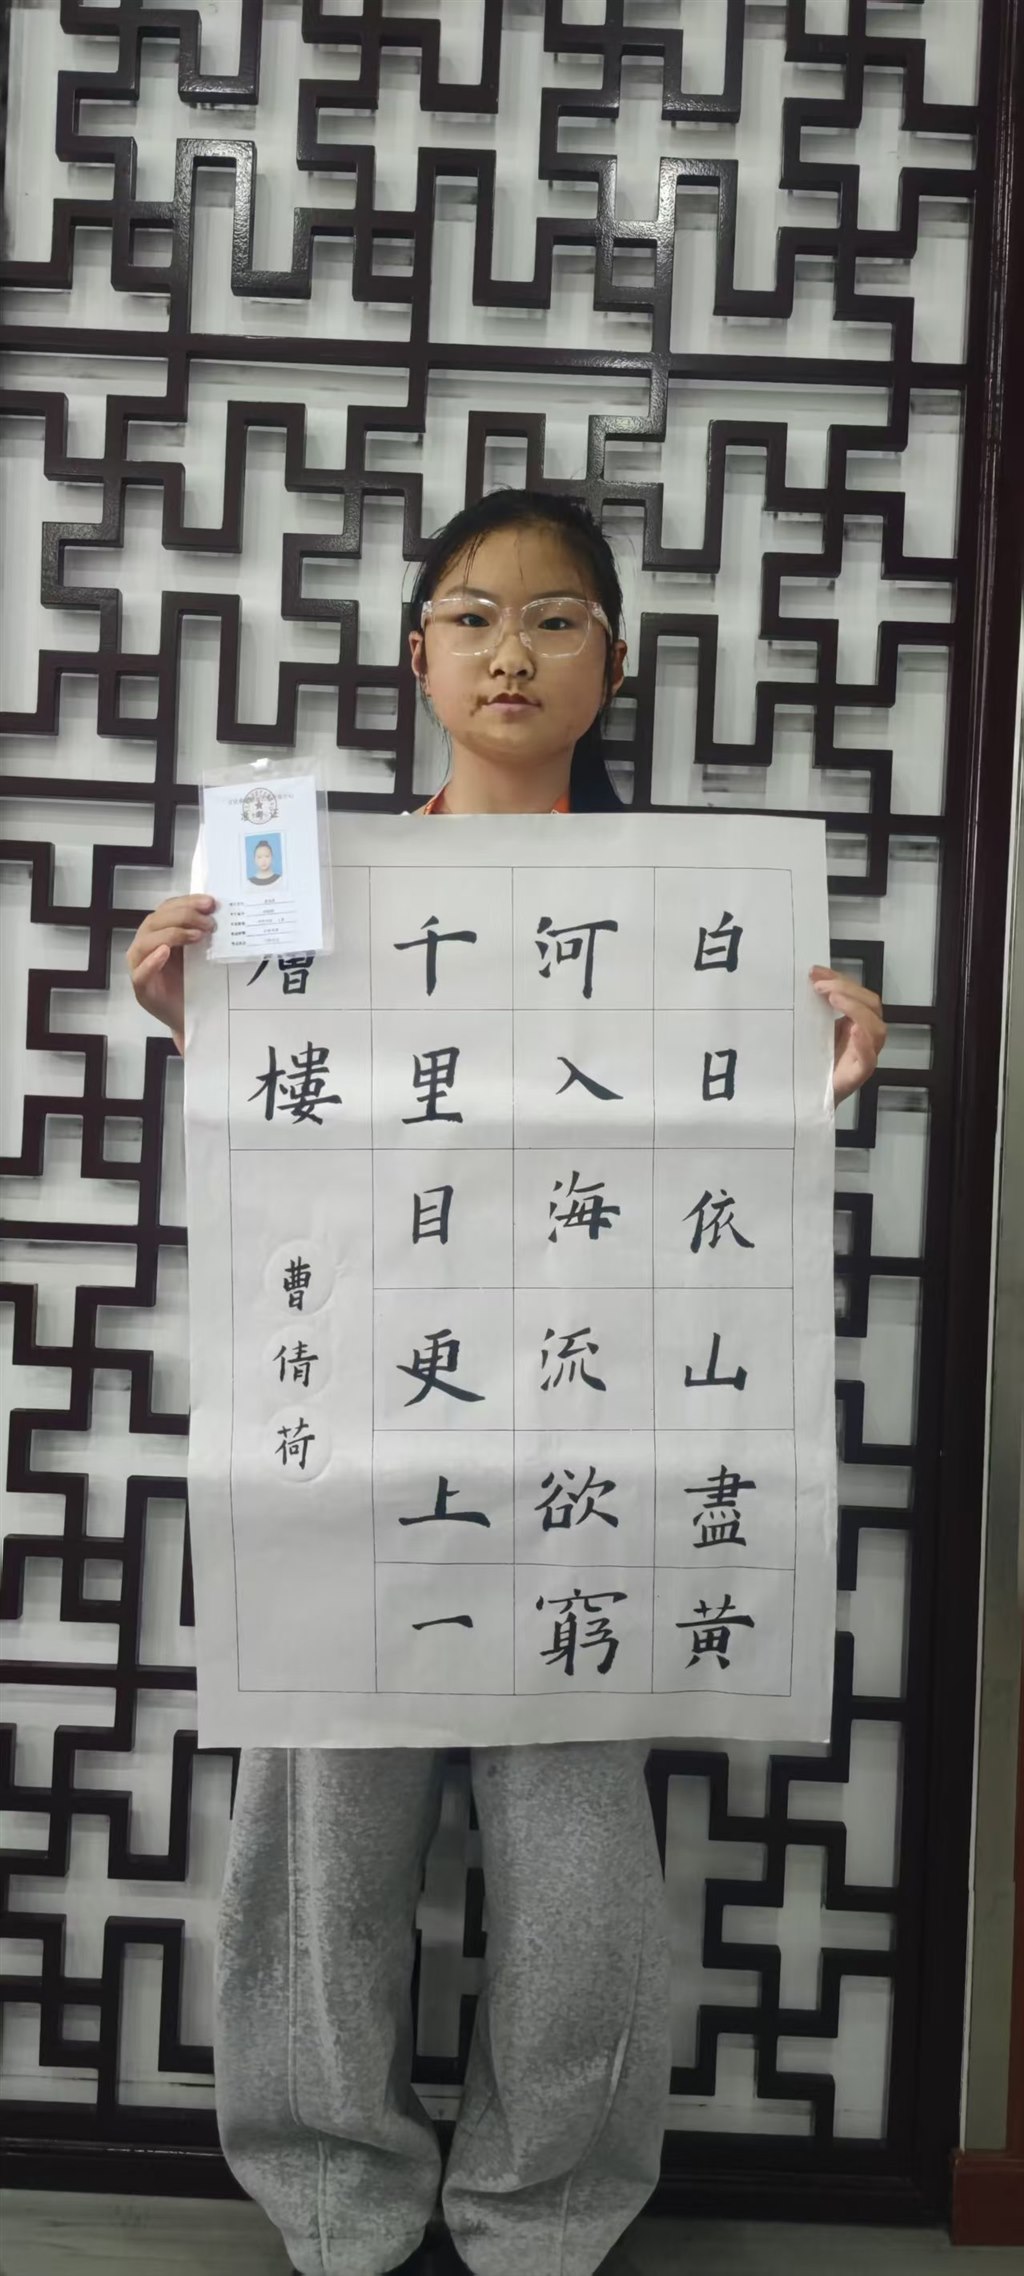 白日依山盡黄
河入海流欲窮
千里目更上一
層樓
曹倩荷
准考证